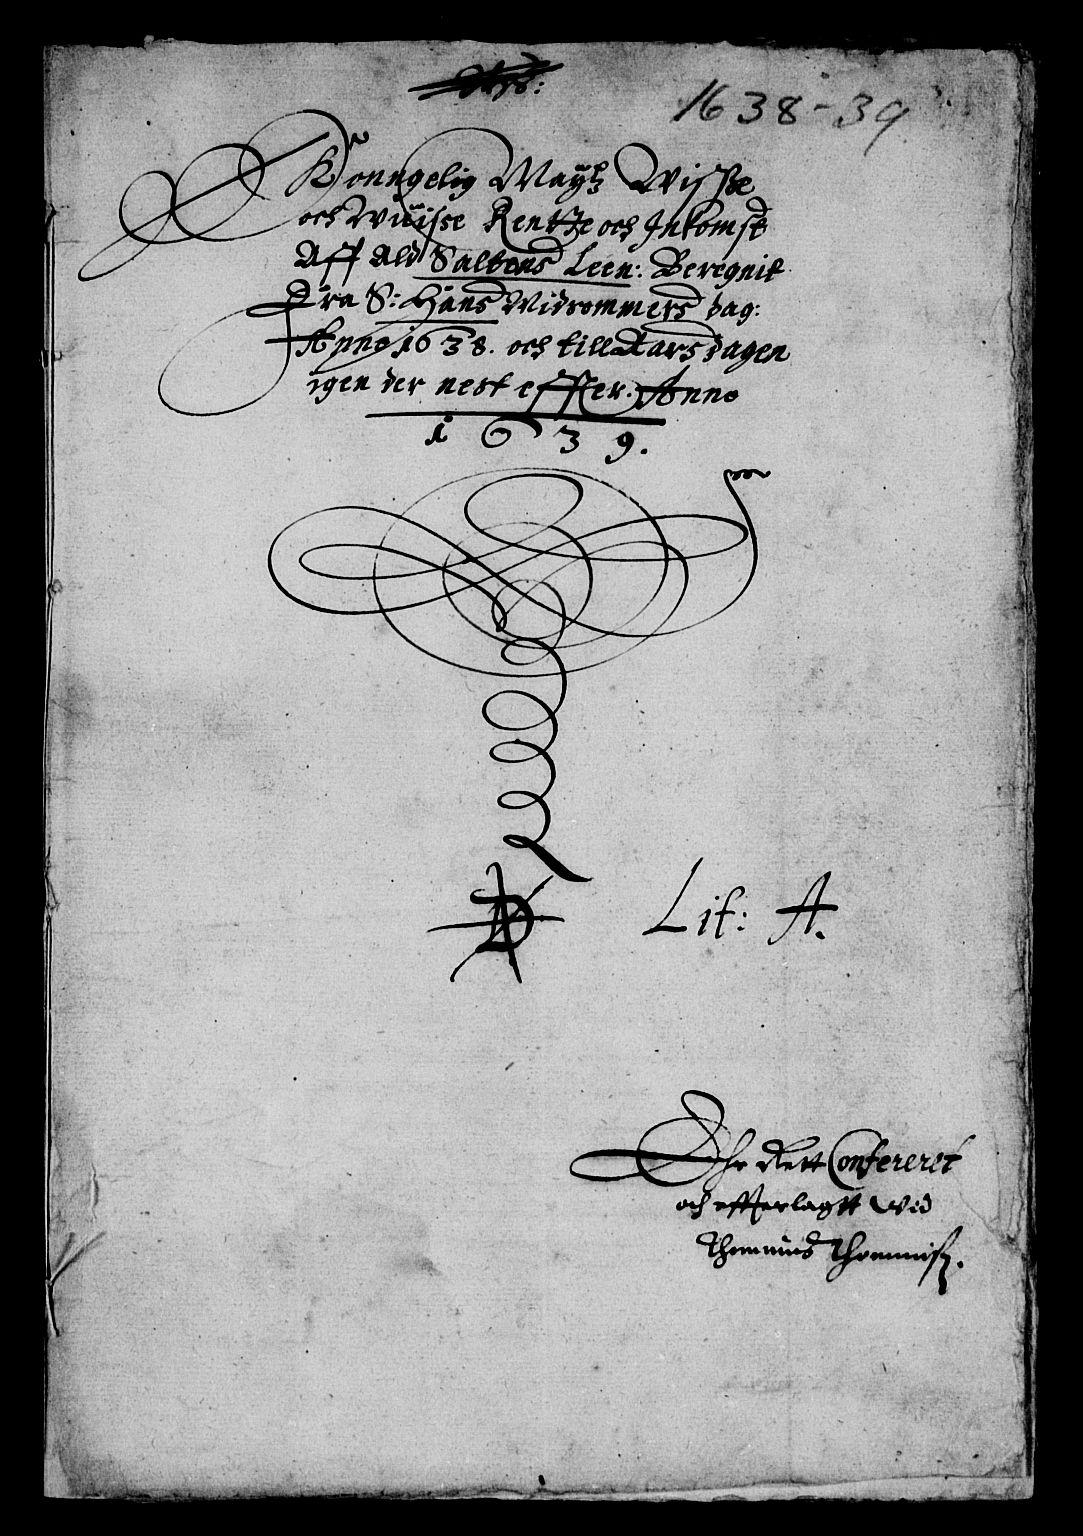 1638-39
Konngelig Mayttz Wisße
och Wuisse Rentte och Inkomst
Aff Ald Saltens Leen: Beregnit
Fra S: Hans Midsommers dag:
Anno 1638. och till Aarsdagen
igen der nest effter. Anno
1639.
Lit: A.
Ehr Rett Confereret
och effterlagtt wid
Thommis Thommisz.